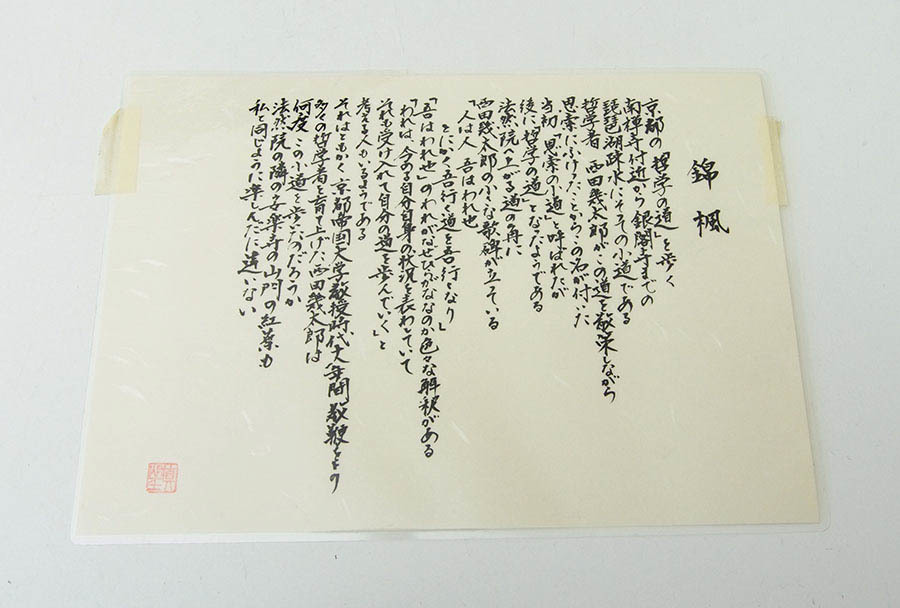 錦楓
京都の「哲学の道」を歩く
南禅寺付近から銀閣寺までの
琵琶湖疎水にそその小道である
哲学者 西田幾太郎がこの道を散策しながら
思索にふけったことからこの名が付いた
当初「思索の小道」と呼ばれたが
後に「哲学の道」となったようである
法然院へ上がる道の角に
西田幾太郎の小さな歌碑が立っている
「人は人 吾はわれ也
とにかく吾行く道を吾行くなり」
「吾はわれ也」のわれがなぜひらがななのか色々な解釈がある
「われは、今のある自分自身の状況を表わしていて
それも受け入れて自分の道を歩んでいく」と
考える人もいるようである
それはともかく 京都帝国大学教授時代 年間 教鞭をとり
多くの哲学者を育て上げた西田幾太郎は
何度この小道を歩いたのだろうか
法然院の隣の安楽寺の山門の紅葉も
私と同じように楽しんだに違いない